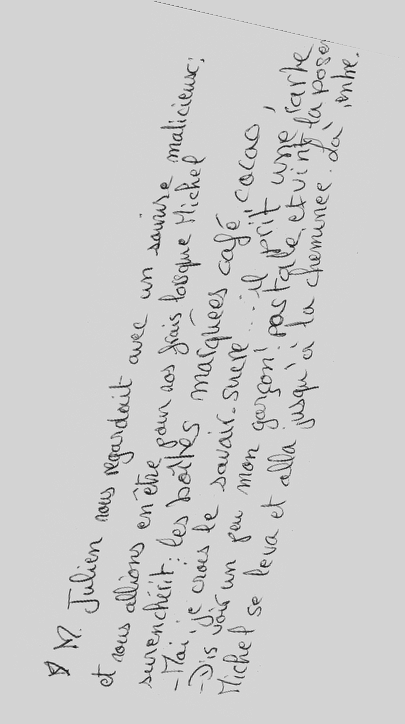 M. Julien nous regardait avec un sourire malicieux;
et nous allions en être pour nos frais lorsque Michel
surenchérit: les boîtes marquées café, cacao,
- Moi, je crois le savoir. sucre... il prit une carte
- Dis voir un peu mon garçon! postale, et vint la poser
Michel se leva et alla jusqu'à la cheminée. Là, entre.